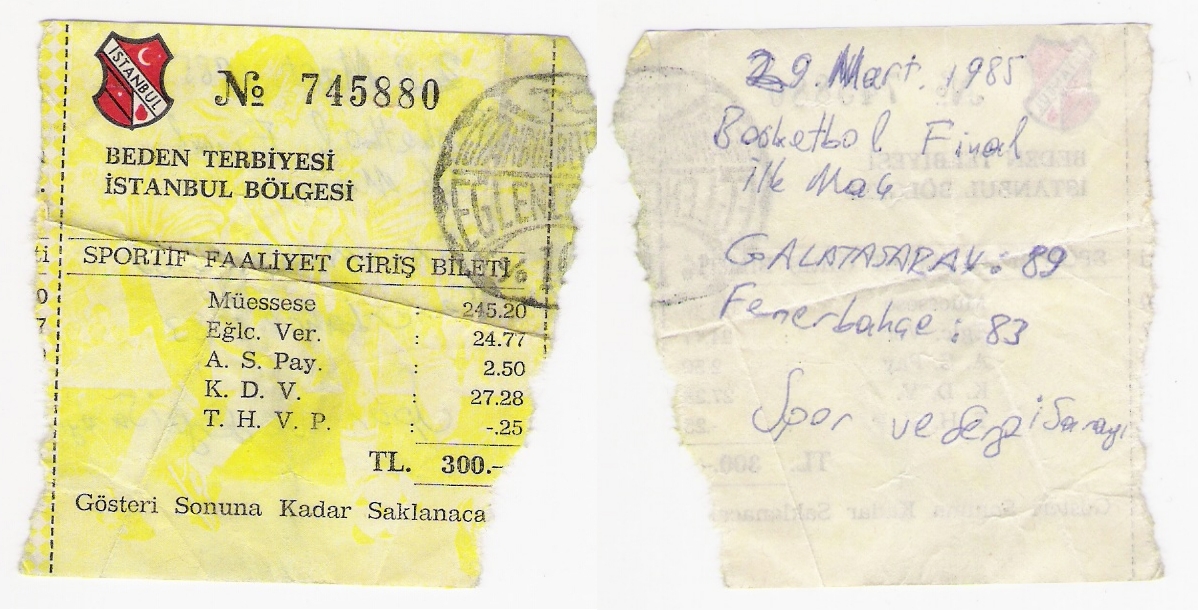 İSTANBUL
№ 745880
BEDEN TERBİYESİ
İSTANBUL BÖLGESİ
SPORTİF FAALİYET GİRİŞ BİLETİ
Müessese : 245.20
Eğlc. Ver. : 24.77
A. S. Pay. : 2.50
K. D. V. : 27.28
T. H. V. P. : -.25
TL. 300.-
Gösteri Sonuna Kadar Saklanaca
29. Mart. 1985
Basketbol Final
ilk Maç
GALATASARAY : 89
Fenerbahçe : 83
Spor ve Sergi Sarayı